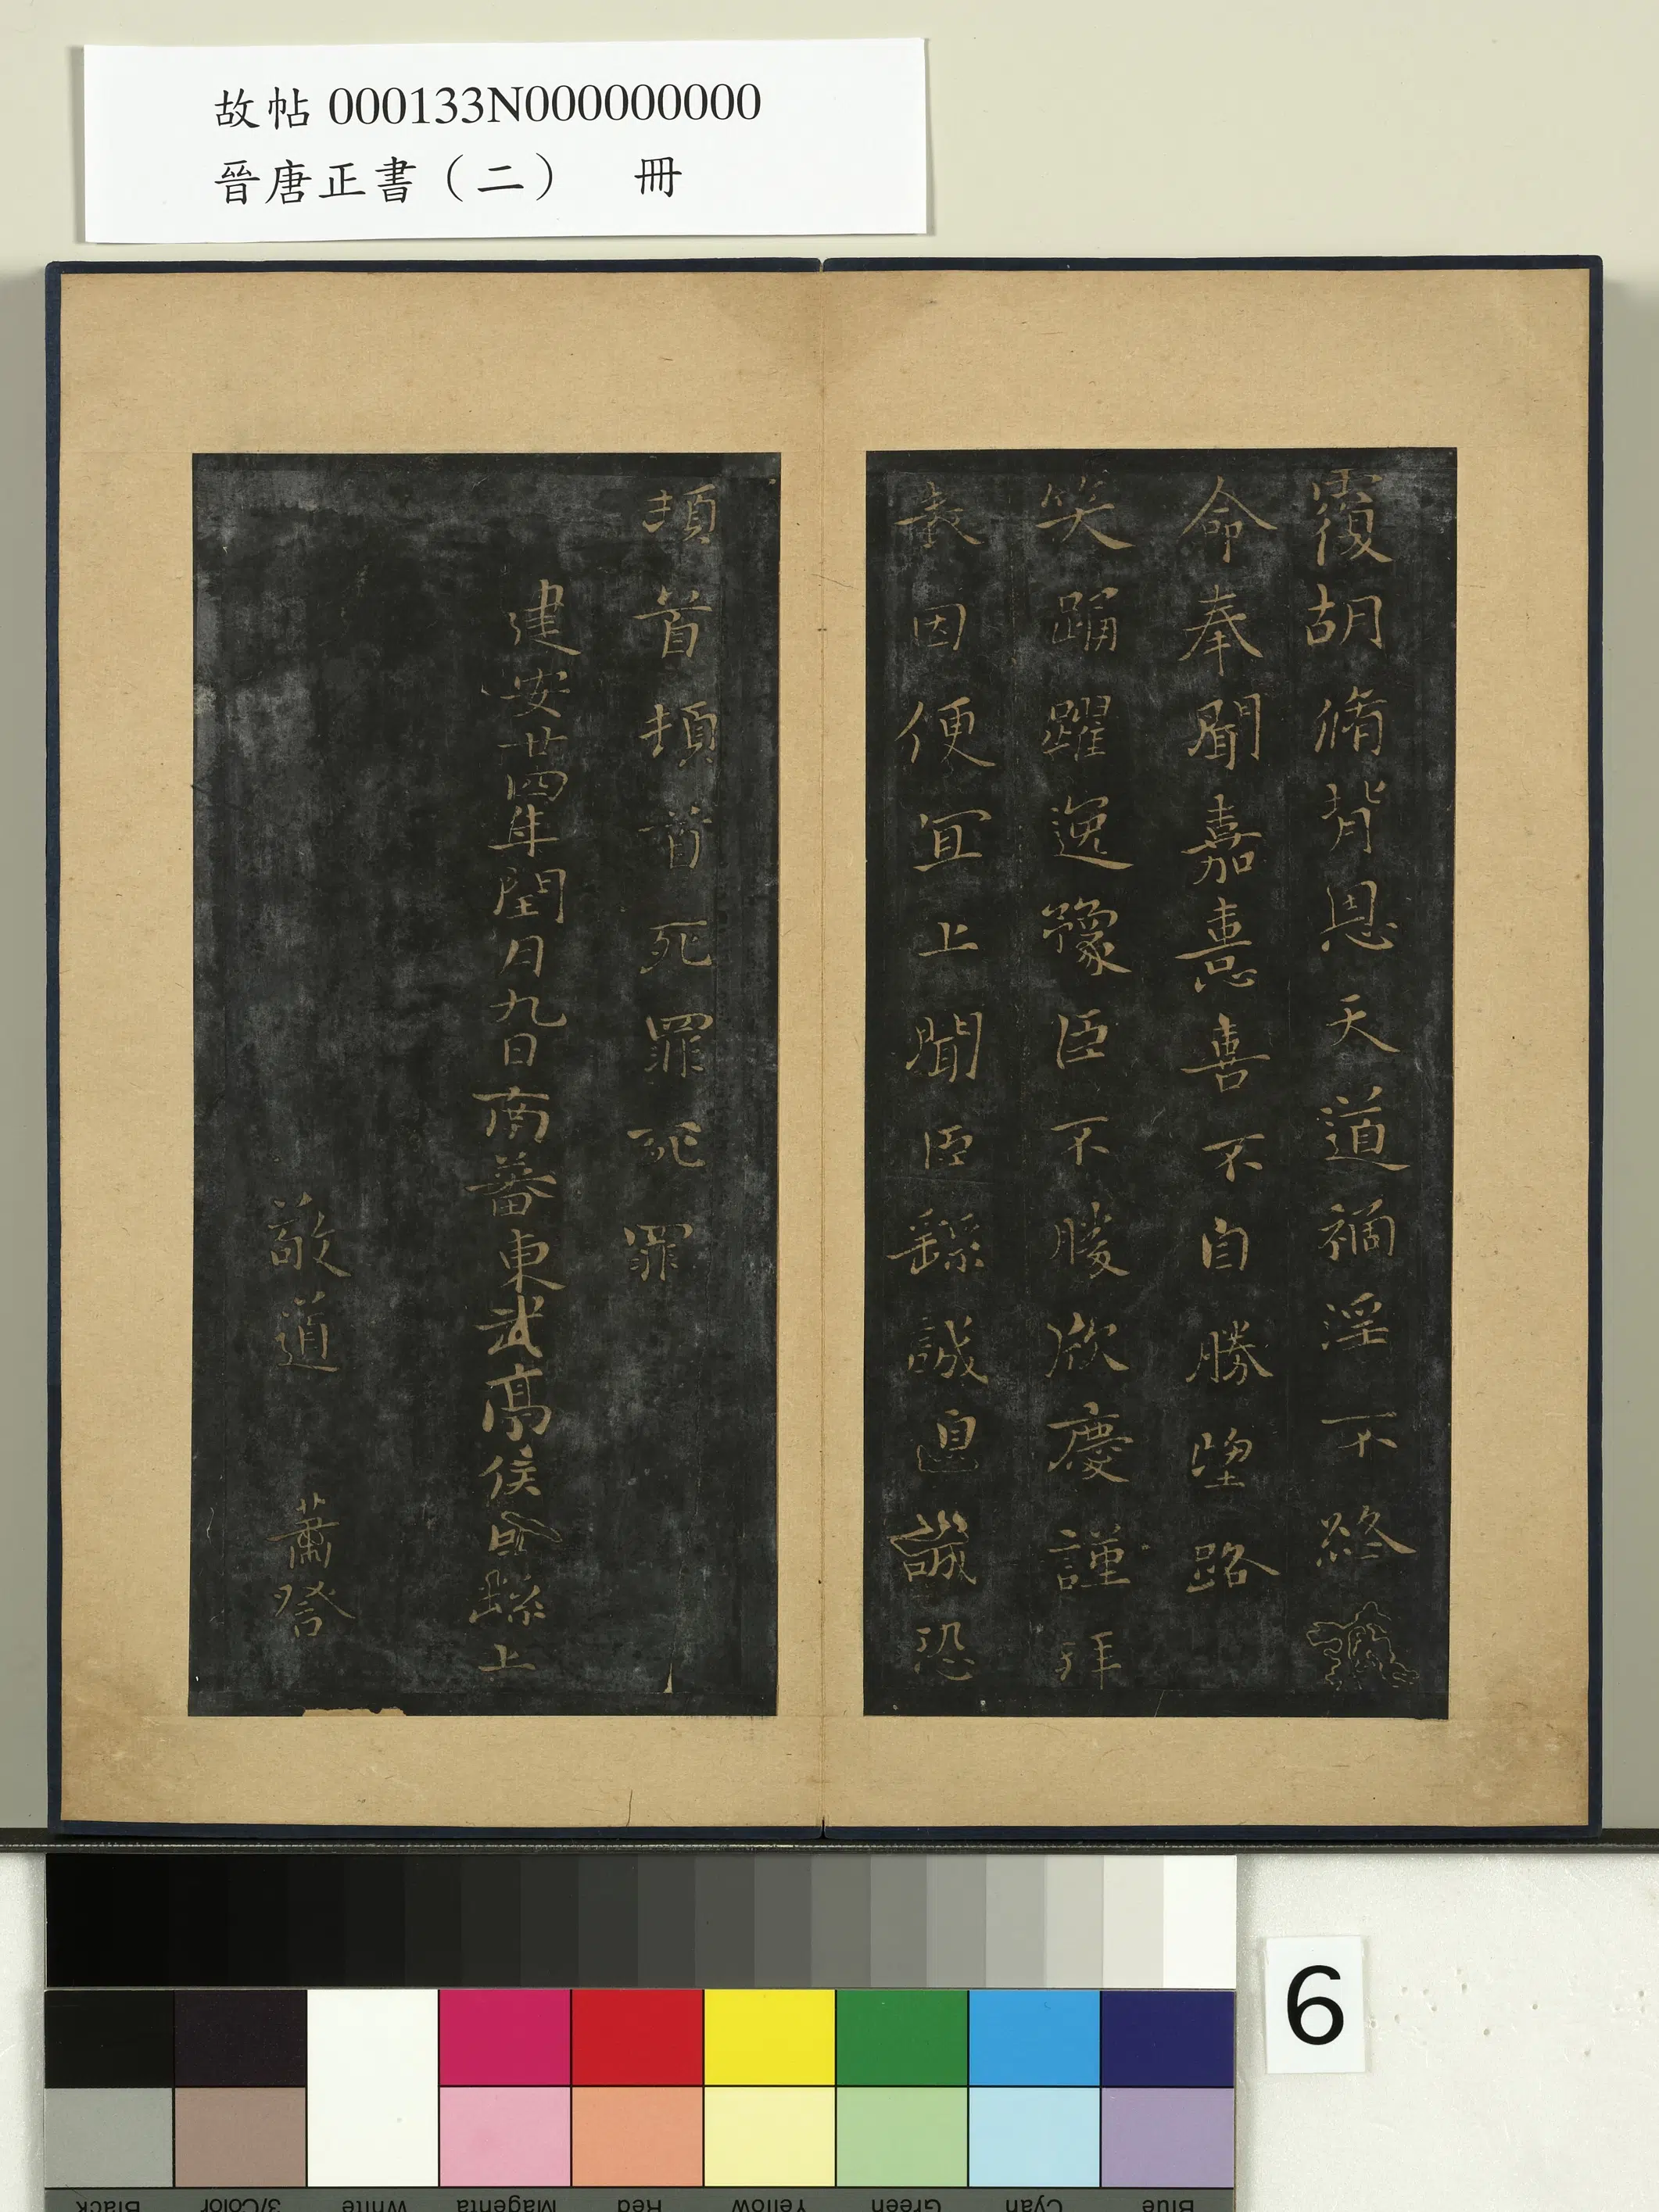 故帖000133N000000000
晉唐正書（二） 冊
覆胡脩背恩天道禍淫不終
命奉聞嘉憙喜不自勝望路
笑踊躍逸豫臣不勝欣慶謹拜
表因便宜上聞臣繇誠惶誠恐
頓首頓首死罪死罪
建安廿四年閏月九日南蕃東武亭侯臣繇上
敬道 蕭詧
6
Black 3/Color White Magenta Red Yellow Green Cyan Blue